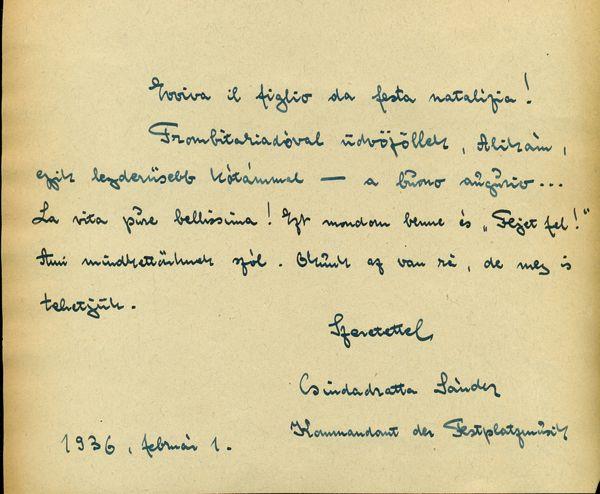 Evviva il figlio da festa natalizia!
Trombitariadóval üdvözöllek, Alikám,
egyik legderűsebb kótámmal — a buono augurio...
La vita pure bellissima! Ezt mondom benne és „Fejet fel!“
Ami mindkettőnknek szól. Okunk az van rá, de meg is
tehetjük.
Szeretettel
Csindadratta Sándor
Kommandant der Festplatzmusik
1936, február 1.